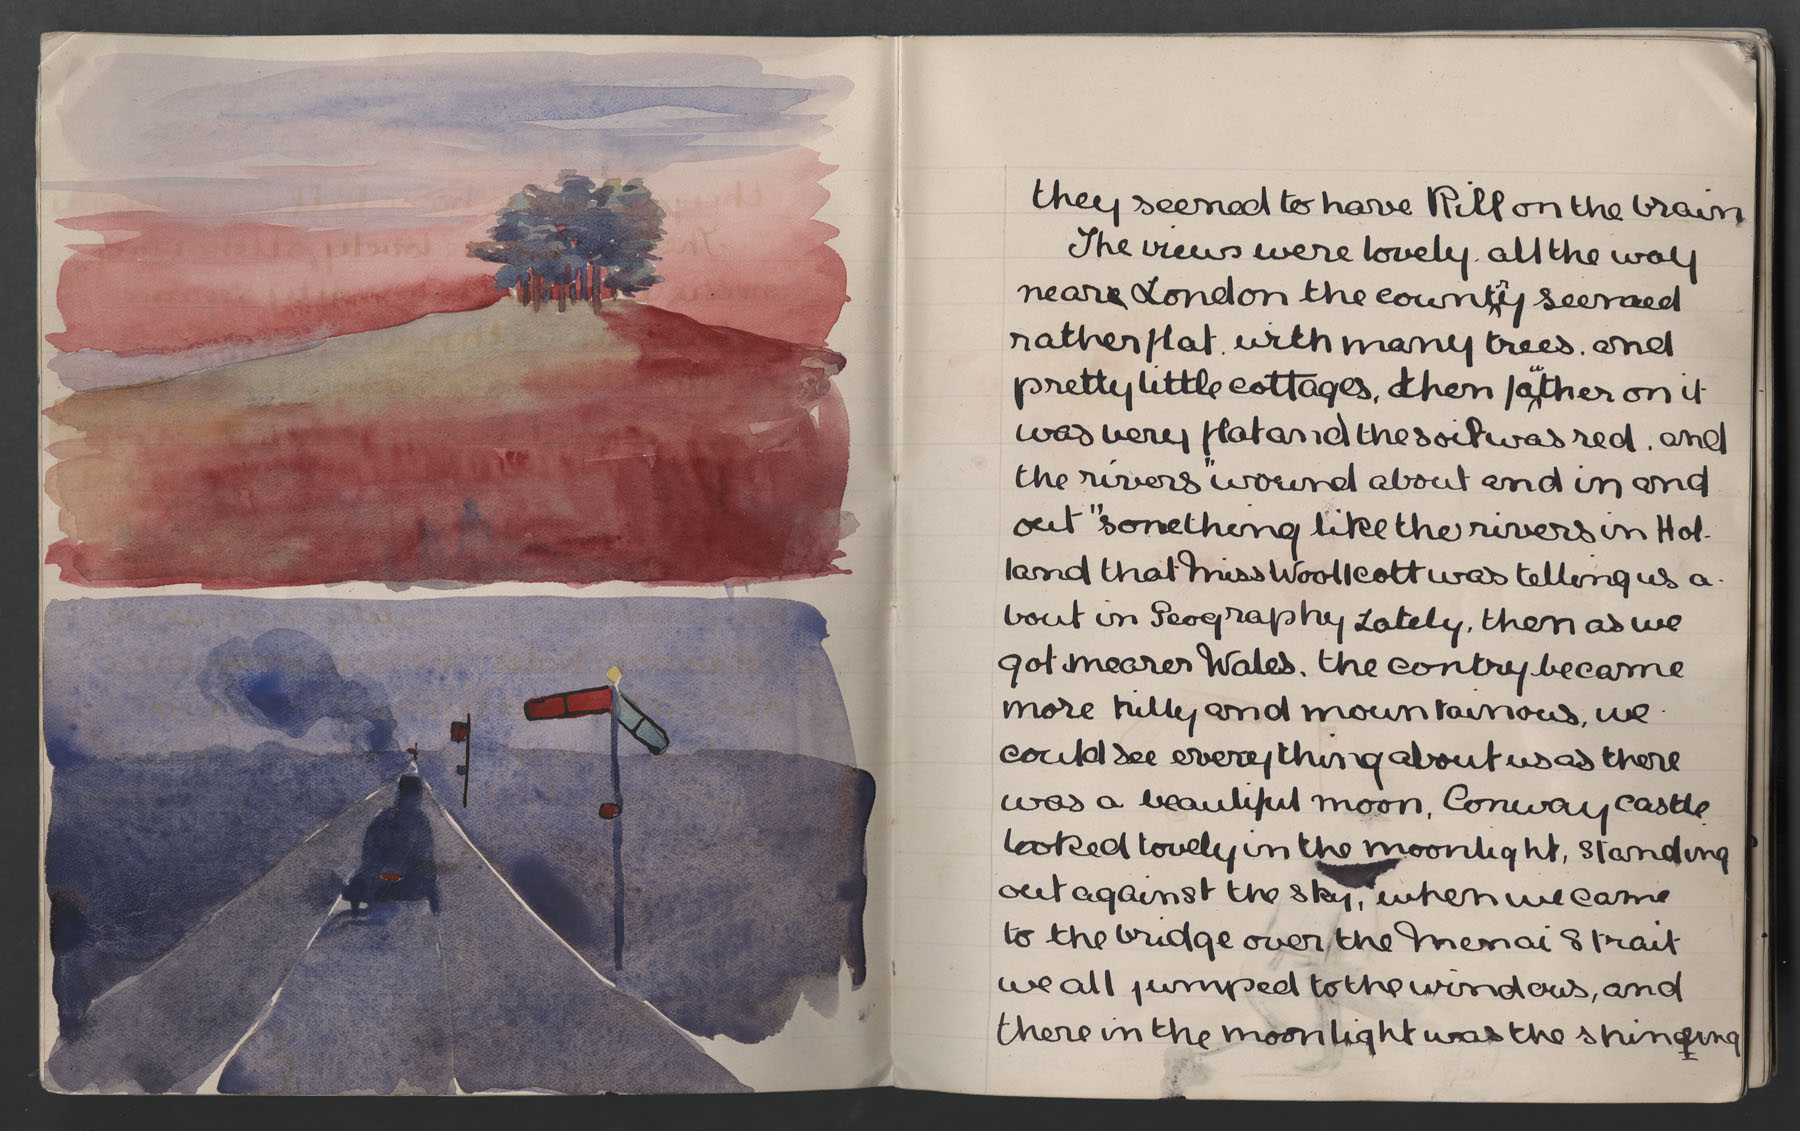 they seemed to have Rill on the brain
The views were lovely. all the way
near London the country seemed
rather flat. with many trees. and
pretty little cottages, then father on it
was very flat and the soil was red. and
the rivers "wound about and in and
out" something like the rivers in Hol-
land that Miss Woollcott was telling us a-
bout in Geography Lately, then as we
got nearer Wales. the contry became
more hilly and mountainous, we
could see everything about us as there
was a beautiful moon, Conway castle
looked lovely in the moonlight, standing
out against the sky, when we came
to the bridge over the Menai Strait
we all jumped to the windows, and
there in the moonlight was the shining